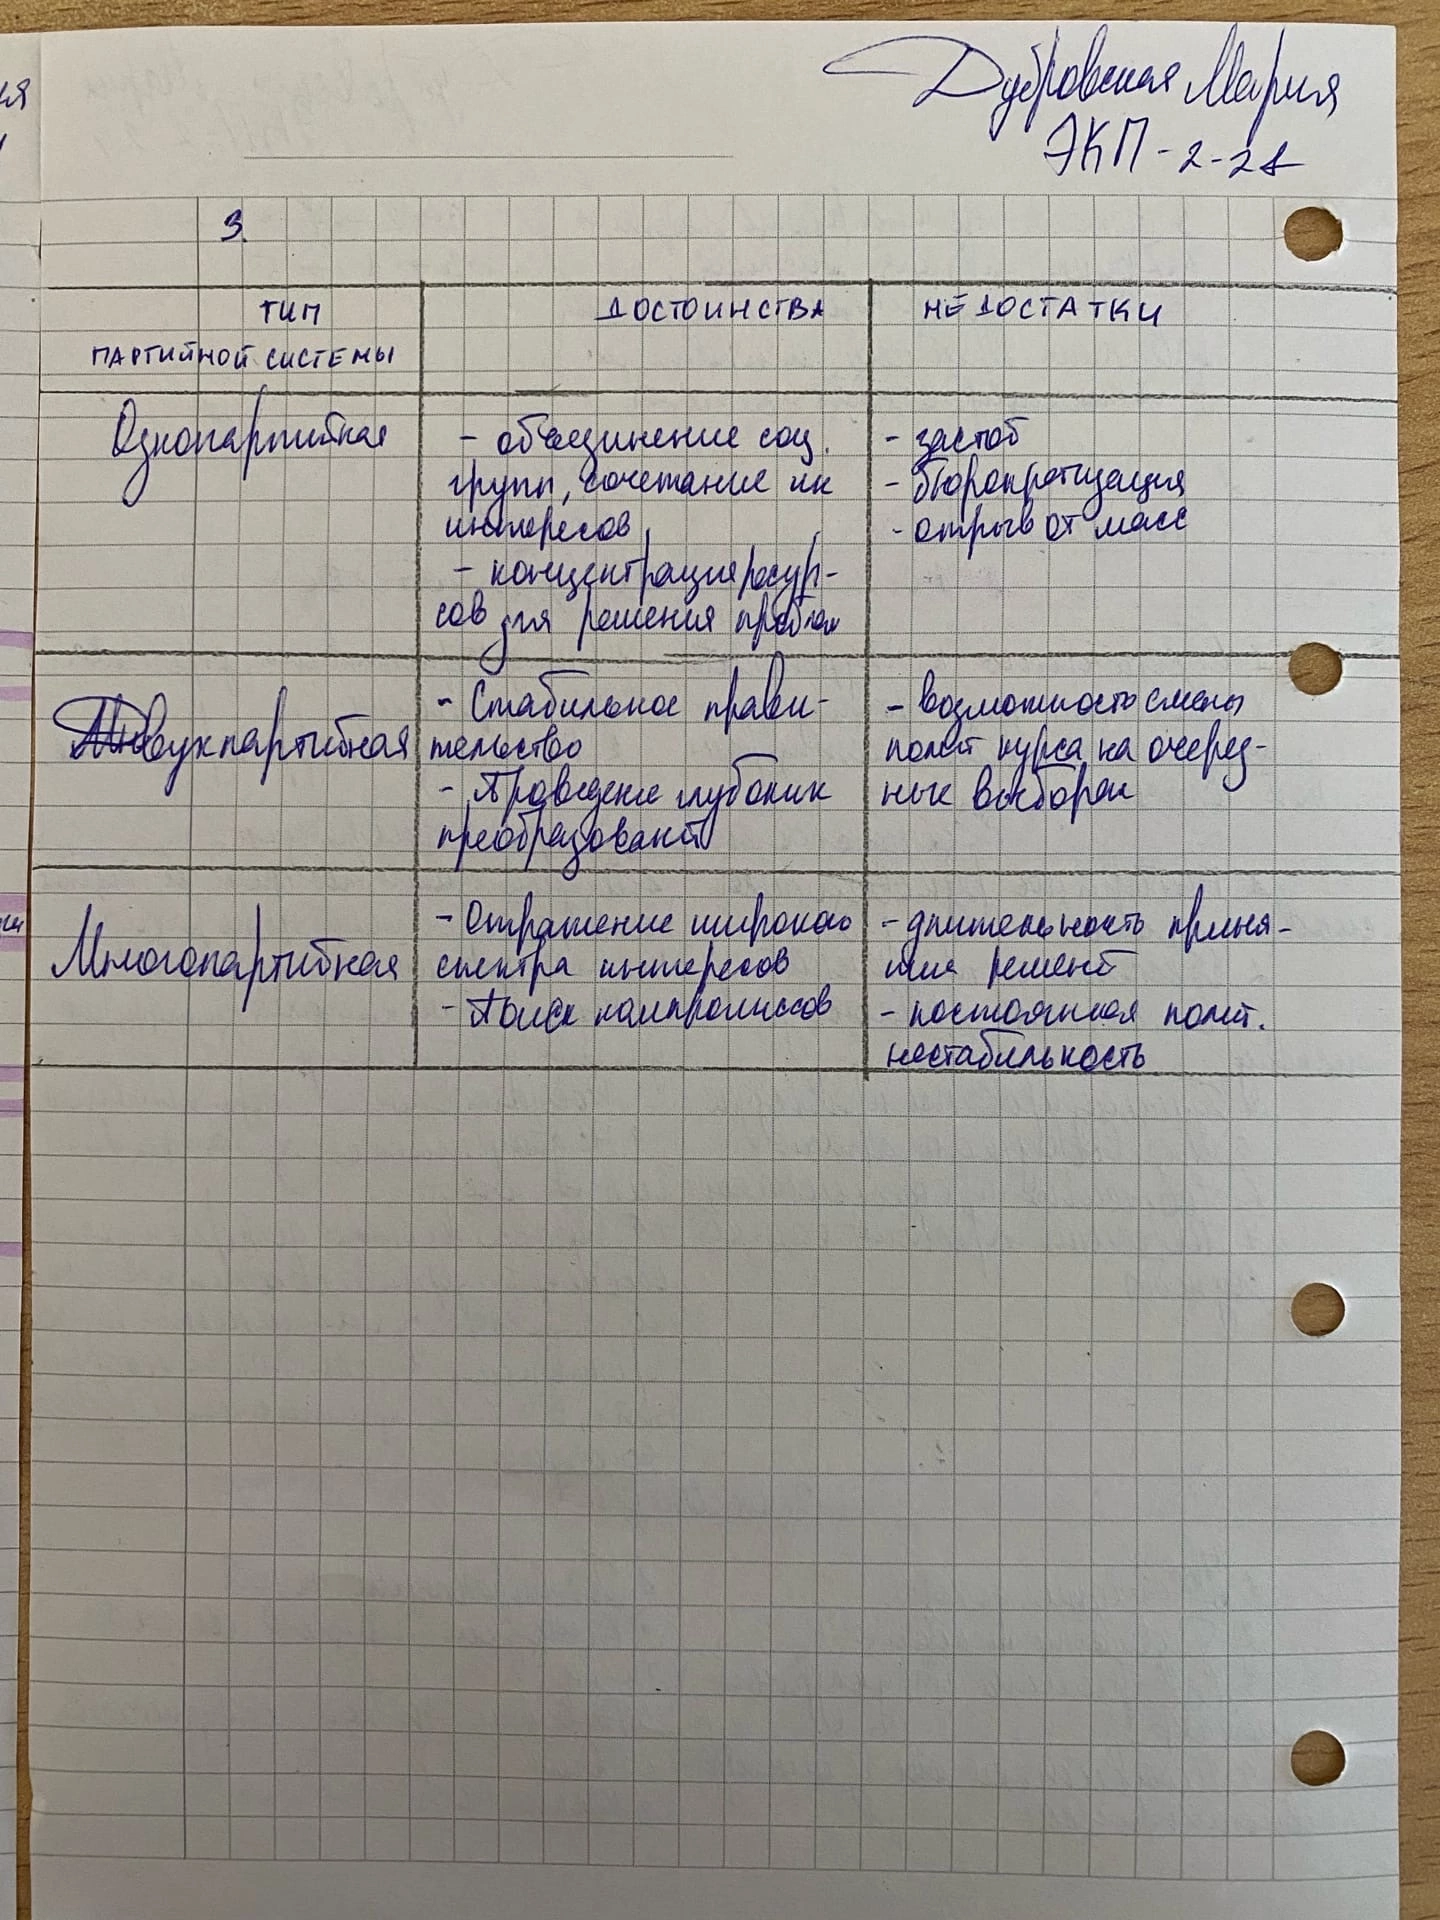 Дубровская Мария
ЭКП-2-21
3.
ТИП
ПАРТИЙНОЙ СИСТЕМЫ
ДОСТОИНСТВА
НЕДОСТАТКИ
Однопартийная
- объединение соц.
групп, сочетание их
интересов
- концентрация ресур-
сов для решения проблем
- застой
- бюрократизация
- отрыв от масс
Двухпартийная
- Стабильное прави-
тельство
- Проведение глубоких
преобразований
- возможность смены
полит курса на очеред-
ных выборах
Многопартийная
- Отражение широкого
спектра интересов
- Поиск компромиссов
- длительность приня-
тия решений
- постоянная полит.
нестабильность